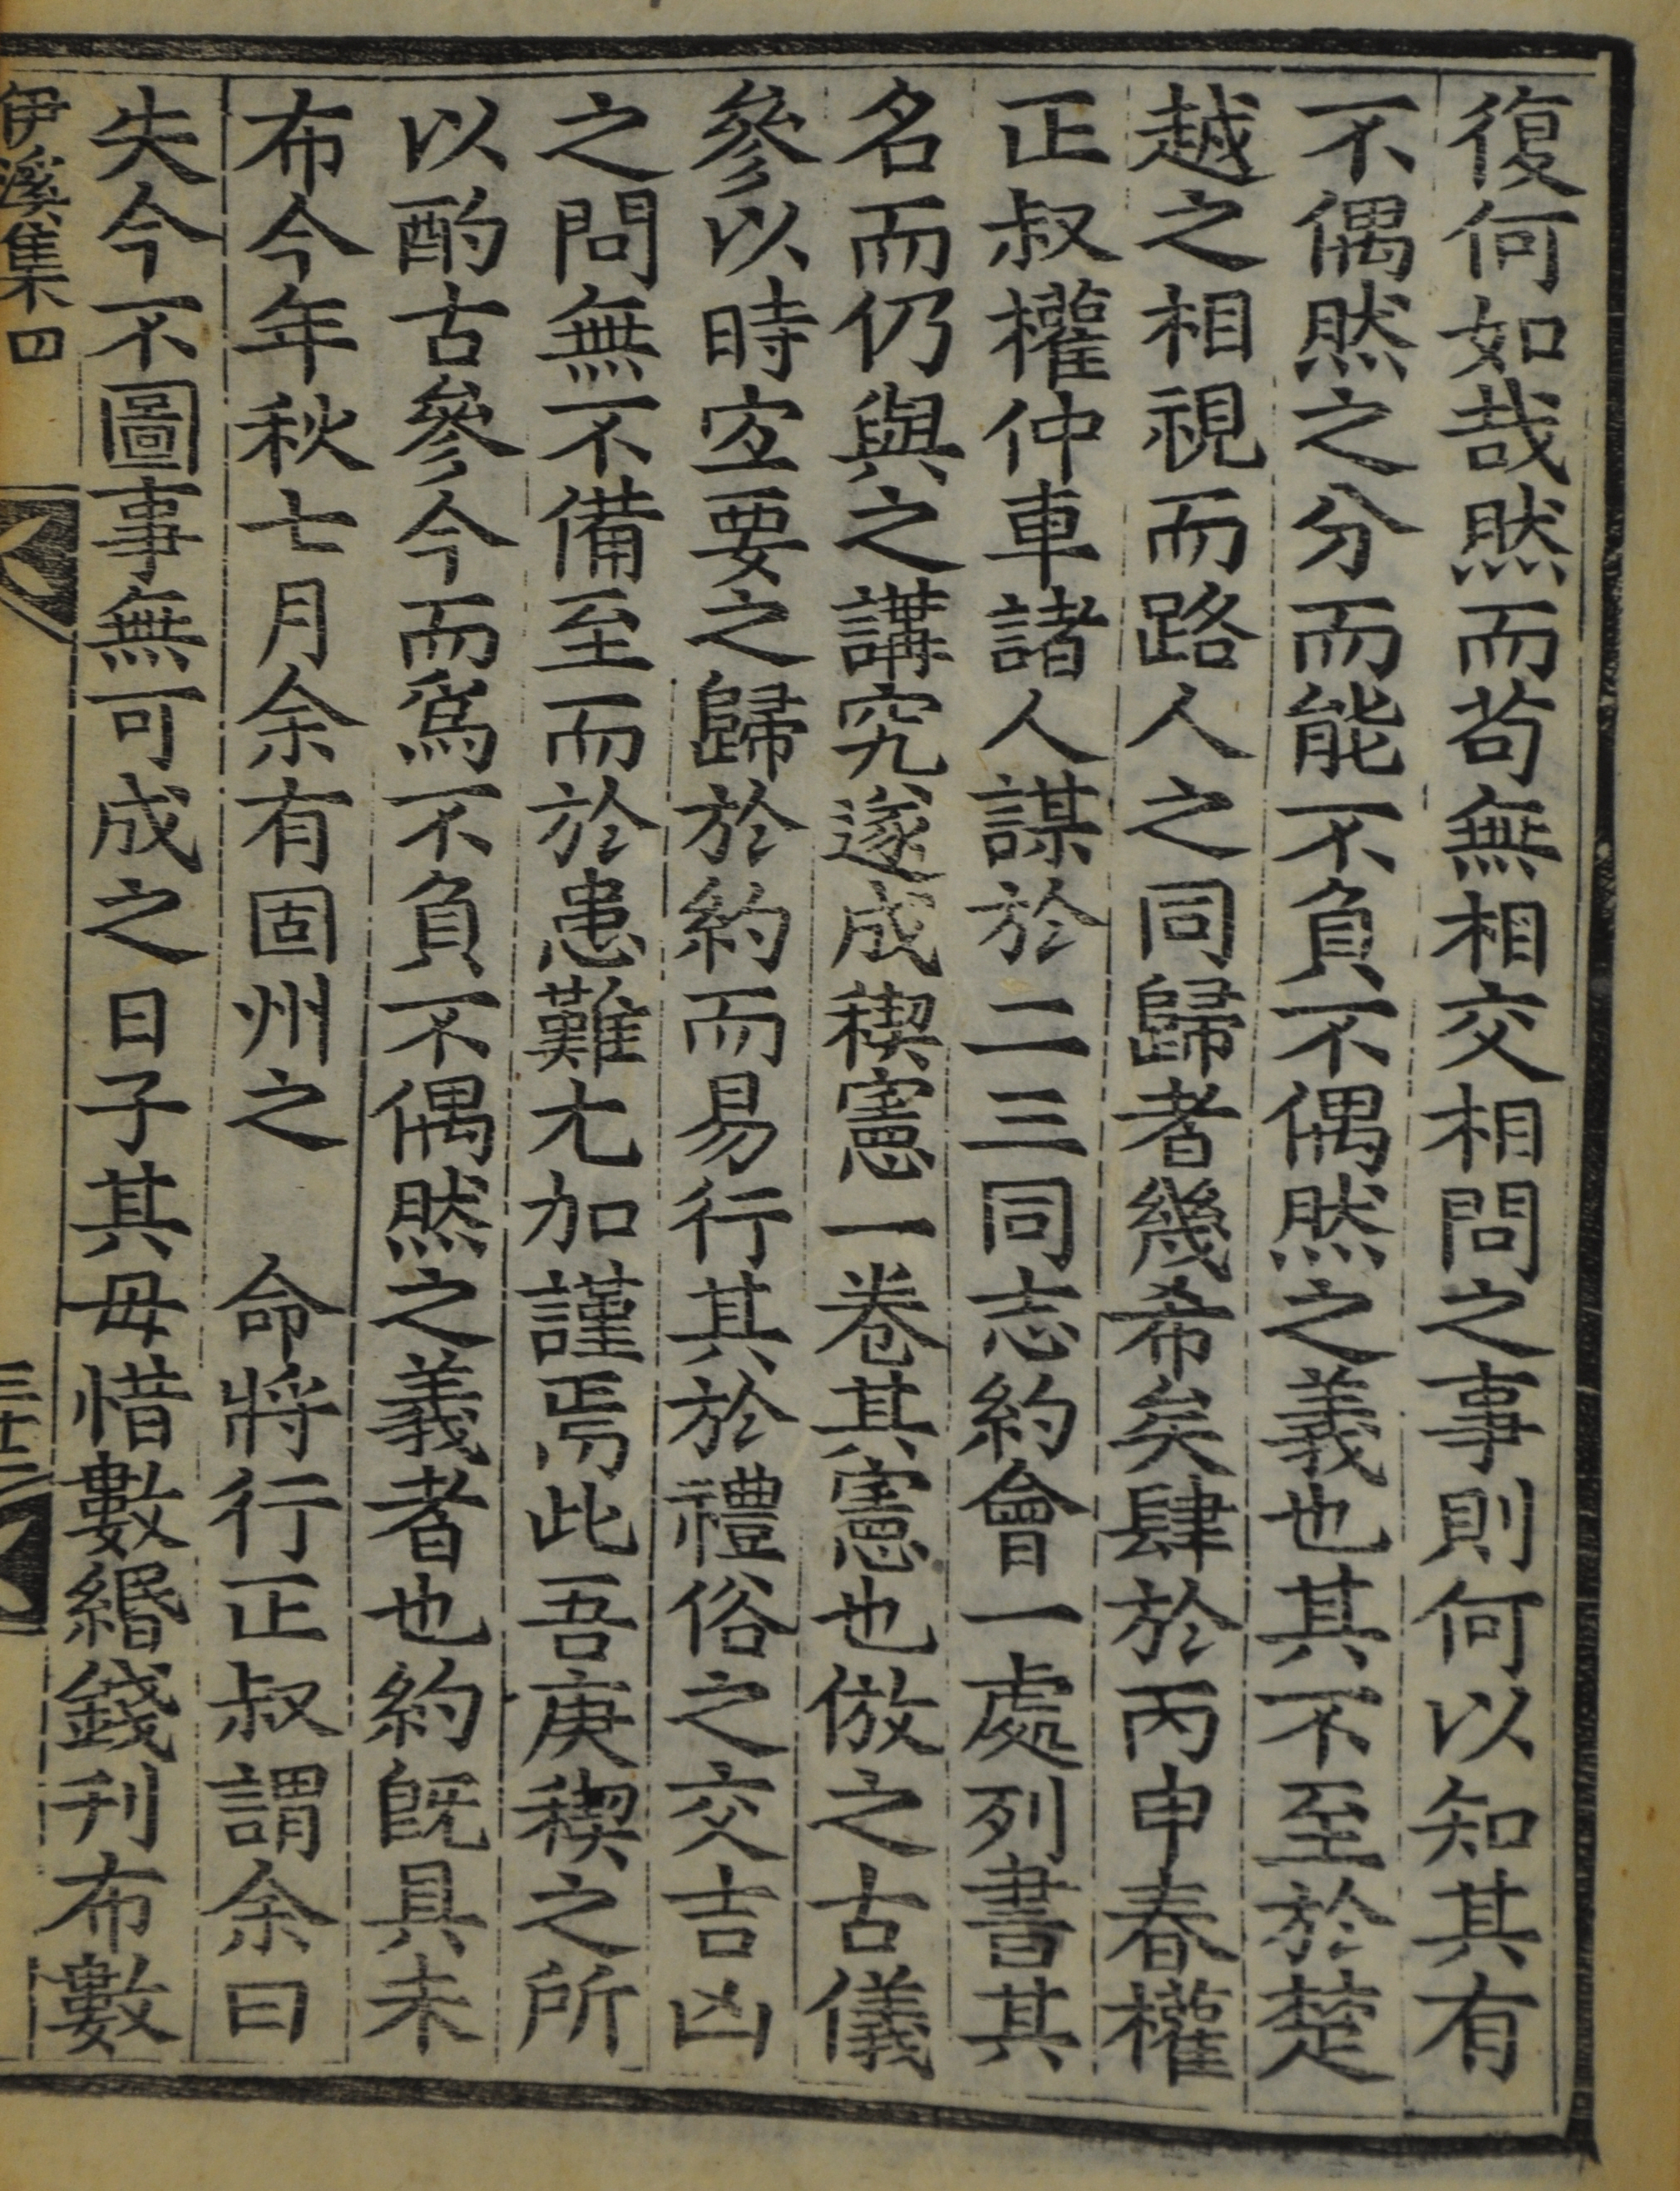 復何如哉然而苟無相交相問之事則何以知其有
不偶然之分而能不負不偶然之義也其不至於楚
越之相視而路人之同歸者幾希矣肆於丙申春權
正叔權仲車諸人謀於二三同志約會一處列書其
名而仍與之講究遂成稧憲一卷其憲也倣之古儀
參以時宜要之歸於約而易行其於禮俗之交吉凶
之問無不備至而於患難尤加謹焉此吾庚稧之所
以酌古參今而爲不負不偶然之義者也約旣具未
布今年秋七月余有固州之 命將行正叔謂余曰
失今不圖事無可成之日子其毋惜數緡錢刊布數
伊溪集四
三十二